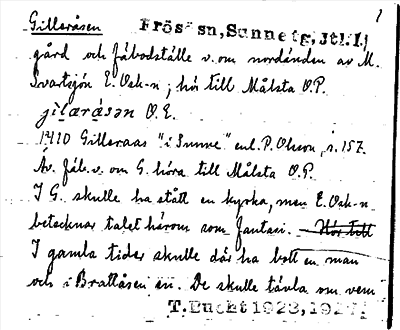 Gilleråsen Frösö sn, Sunne tg, Jtl. 1
gård och fäbodställe v. om nordänden av M.
Svartsjön E. Osk-n; hör till Målsta O.P.
O. E.
1410 Gilleraas "i Sunne" enl. P. Olsson, s. 157.
Äv. fäb. v. om G. höra till Målsta O.P.
I G. skulle ha stått en kyrka, men E. Osk-n
betecknar talet härom som fantasi. – Hör till
I gamla tider skulle där ha bott en man
och i Brattåsen en. De skulle tävla om vem
T. Bucht 1923, 192